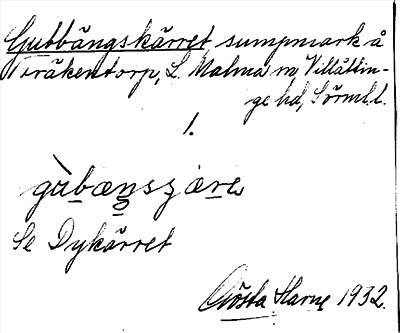 Gubbängskärret, sumpmark å
Fräkentorp, L. Malma sn, Villåttin-
ge hd, Sörml.l.
1.
gùbæŋsʒære
Se Dykärret
Gösta Harne 1932.